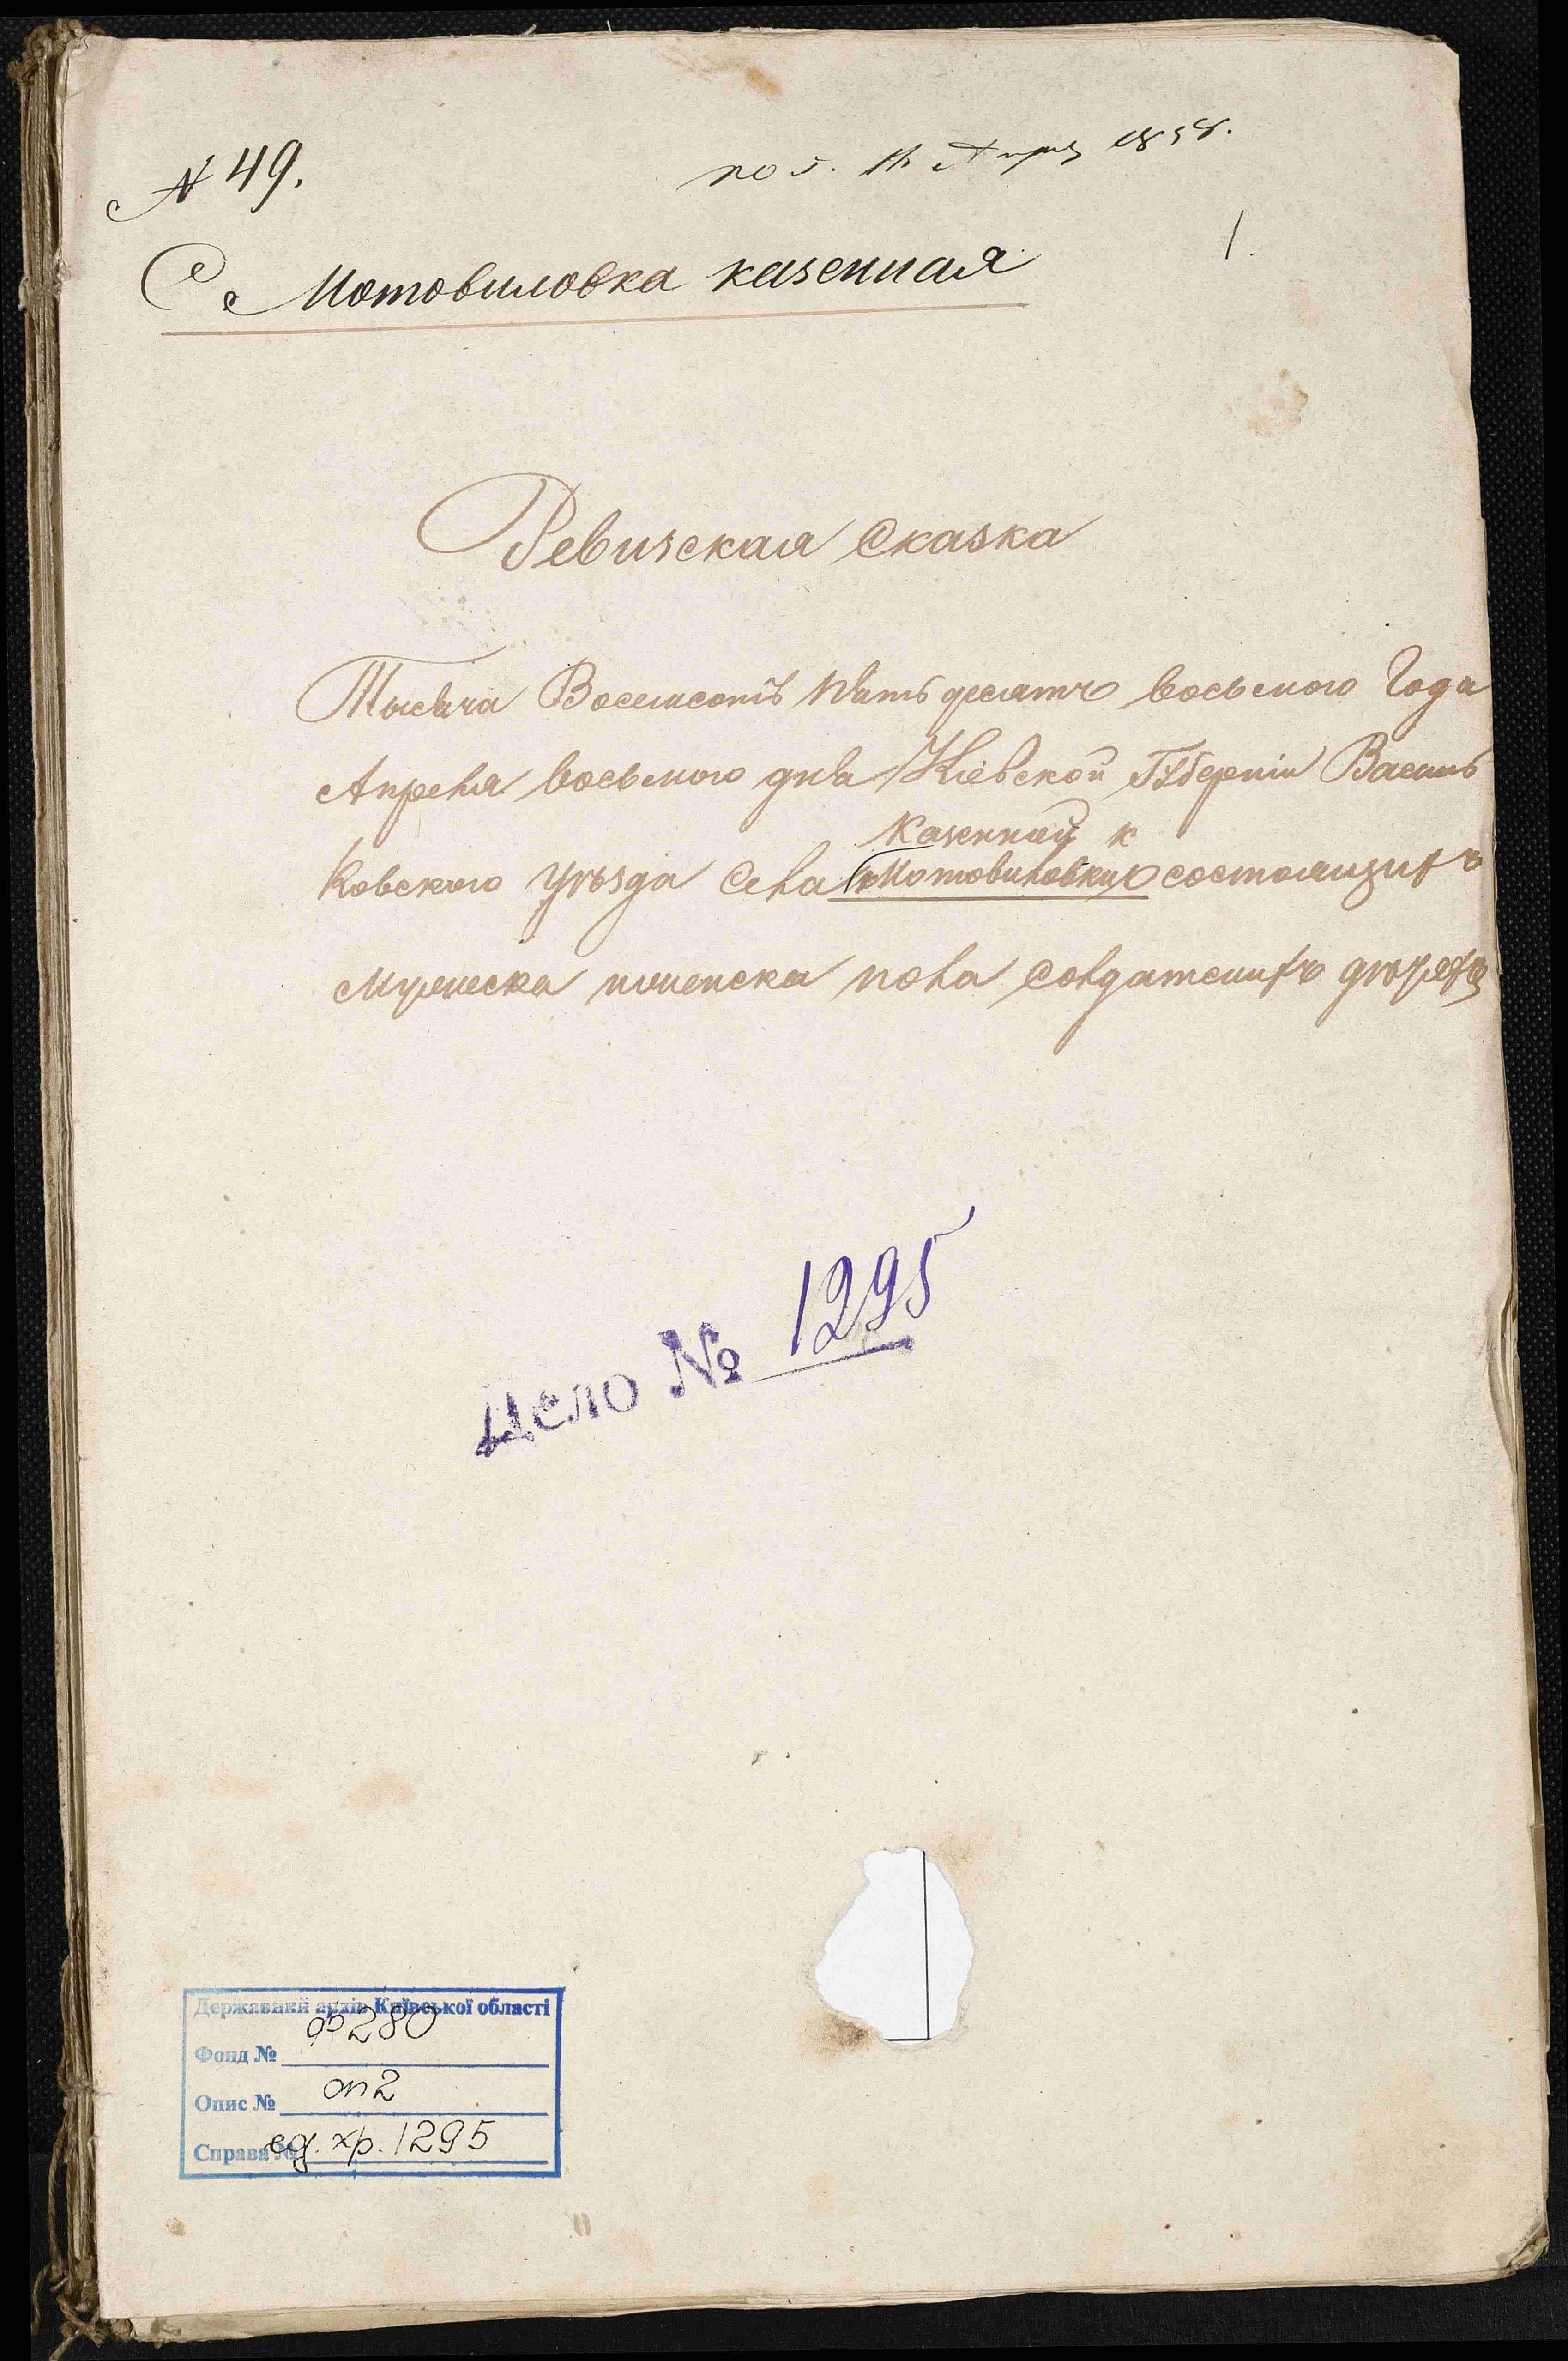 № 49.
пол. 11 Апрѣ 1858.
1.
С Мотовиловка казенная
Ревизская Сказка
Тысяча Восемсотъ Пятьдесятъ восьмого Года
Апреля восьмого дня Кіевской Губерніи Василь
Казенной
Ковского Уѣзда Села Мотовиловки состоящихъ
Мужеска женска пола Солдатскихъ
Дело № 1295
Державний архів Київської області
Фонд № ф 280
Опис № оп 2
Справа № ед. хр. 1295